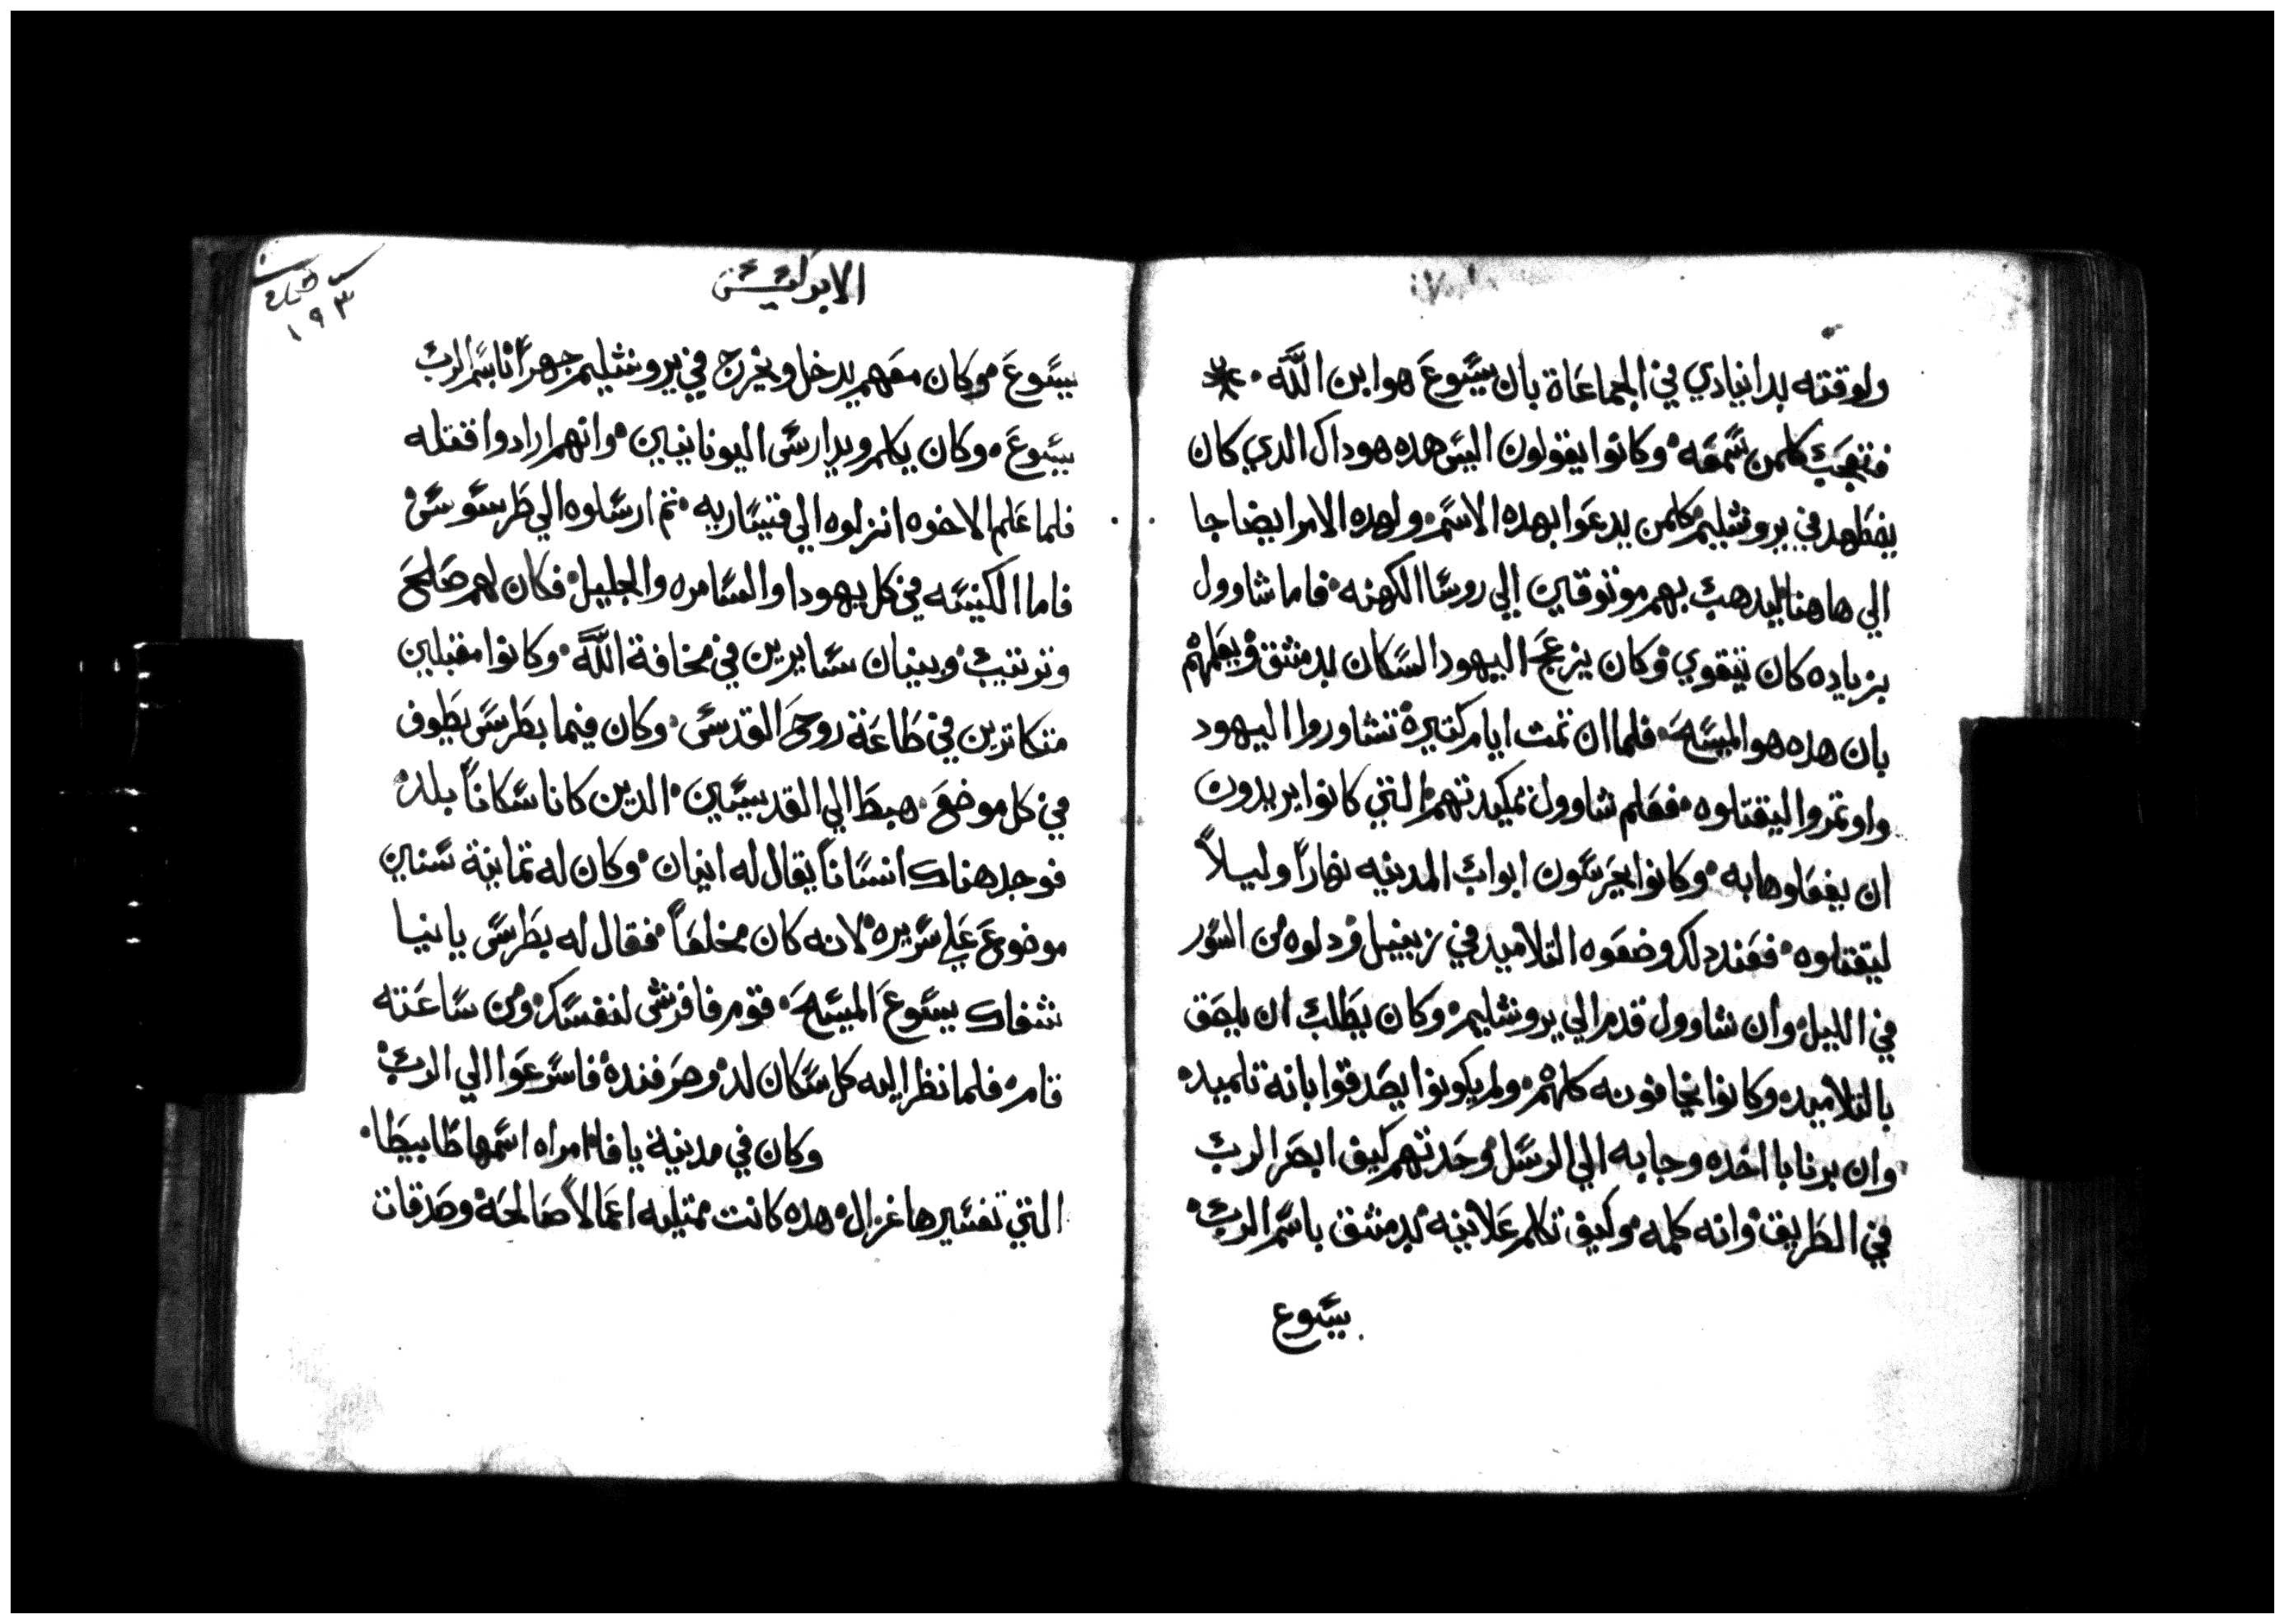 ولوقته بدا ينادي في الجماعاة بان يسوع هو ابن الله ۰
فتعجب كلمن سمعه وكانوا يقولون اليس هده هوداك الدي كان
يضطهد في يروشليم كلمن يدعوا بهده الاسم ولهده الامر ايضا جا
الي هاهنا ليدهب بهم موتوقين الي روسا الكهنه فاما شاوول
بزياده كان يتقوي وكان يزعج اليهود السكان بدمشق ويعلمهم
بان هده هو المسيح فلما ان تمت ايام كتيرة تشاوروا اليهود
واوتمروا ليقتلوه فعلم شاوول بمكيدتهم التي كانوا يريدون
ان يفعلوها به وكانوا يحرسون ابواب المدينه نهاراً وليلاً
ليقتلوه فعند دلك وضعوه التلاميد في زنبيل ودلوه من السور
في الليل وان شاوول قدم الي يروشليم وكان يطلب ان يلصق
بالتلاميد وكانوا يخافونه كلهم ولم يكونوا يصدقوا بانه تلميد
وان برنابا اخده وجا به الي الرسل وحدتهم كيف ابصر الرب
في الطريق وانه كلمه وكيف تكلم علانيه بدمشق باسم الرب
يسوع
الابركسيس
١٩٣
يسوع وكان معهم يدخل ويخرج في يروشليم جهراً باسم الرب
يسوع وكان يكلم ويدارس اليونانيين وانهم ارادوا قتله
فلما علم الاخوه انزلوه الي قيساريه تم ارسلوه الي طرسوس
فاما الكنيسه في كل يهودا والسامره والجليل فكان لهم صلح
وترتيب وبنيان سايرين في مخافة الله وكانوا مقبلين
متكاترين في طاعة روح القدس وكان فيما بطرس يطوف
في كل موضع هبط الي القديسين الدين كانا سكاناً بلد
فوجد هناك انساناً يقال له انيان وكان له تمانية سنين
موضوع علي سريره لانه كان مخلعاً فقال له بطرس يا انيا
شفاك يسوع المسيح قوم فافرش لنفسك ومن ساعته
قام فلما نظر اليه كل سكان لد وصرفنده فاسرعوا الي الرب
وكان في مدينة يافا امراه اسمها طابيطا
التي تفسيرها غزال هده كانت ممتليه اعمالاً صالحة وصدقات